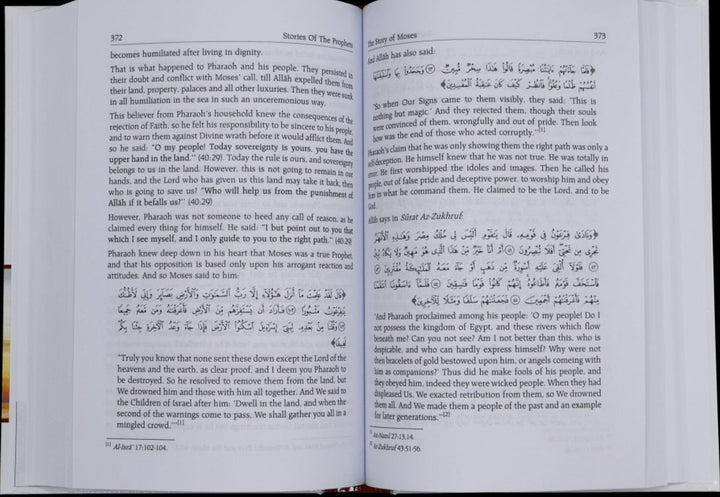 372
Stories Of The Prophets
becomes humiliated after living in dignity.
That is what happened to Pharaoh and his people. They persisted in
their doubt and conflict with Moses' call, till Allâh expelled them from
their land, property, palaces and all other luxuries. Then they were sunk
in all humiliation in the sea in such an unceremonious way.
This believer from Pharaoh's household knew the consequences of the
rejection of Faith, so he felt his responsibility to be sincere to his people,
and to warn them against Divine wrath before it would afflict them. And
so he said: "O my people! Today sovereignty is yours, you have the
upper hand in the land." (40:29). Today the rule is ours, and sovereignty
belongs to us in the land. However, this is not going to remain in our
hands, and the Lord who has given us this land may take it back, then
who is going to save us? "Who will help us from the punishment of
Allâh if it befalls us?" (40:29)
However, Pharaoh was not someone to heed any call of reason, as he
claimed every thing for himself. He said: "I but point out to you that
which I see myself, and I only guide to you to the right path." (40:29)
Pharaoh knew deep down in his heart that Moses was a true Prophet,
and that his opposition is based only upon his arrogant reaction and
attitudes. And so Moses said to him:
﴿قَالَ لَقَدْ عَلِمْتَ مَا أَنزَلَ هَٰؤُلَاءِ إِلَّا رَبُّ السَّمَٰوَٰتِ وَالْأَرْضِ بَصَائِرَ وَإِنِّي لَأَظُنُّكَ
يَٰفِرْعَوْنُ مَثْبُورًا ﴿١٠٢﴾ فَأَرَادَ أَن يَسْتَفِزَّهُم مِّنَ الْأَرْضِ فَأَغْرَقْنَٰهُ وَمَن مَّعَهُ جَمِيعًا
﴿١٠٣﴾ وَقُلْنَا مِنْ بَعْدِهِ لِبَنِي إِسْرَٰءِيلَ اسْكُنُوا الْأَرْضَ فَإِذَا جَاءَ وَعْدُ الْآخِرَةِ جِئْنَا بِكُمْ
لَفِيفًا﴾
"Truly you know that none sent these down except the Lord of the
heavens and the earth, as clear proof, and I deem you Pharaoh to
be destroyed. So he resolved to remove them from the land, but
We drowned him and those with him all together. And We said to
the Children of Israel after him: 'Dwell in the land, and when the
second of the warnings come to pass, We shall gather you all in a
mingled crowd.'"[1]
[1] Al-Isrâ' 17:102-104.
The Story of Moses
373
And Allâh has also said:
﴿فَلَمَّا جَاءَتْهُمْ ءَايَٰتُنَا مُبْصِرَةً قَالُوا هَٰذَا سِحْرٌ مُّبِينٌ ﴿١٣﴾ وَجَحَدُوا بِهَا وَاسْتَيْقَنَتْهَا
أَنفُسُهُمْ ظُلْمًا وَعُلُوًّا فَانظُرْ كَيْفَ كَانَ عَٰقِبَةُ الْمُفْسِدِينَ﴾
"So when Our Signs came to them visibly, they said: 'This is
nothing but magic.' And they rejected them, though their souls
were convinced of them, wrongfully and out of pride. Then look
how was the end of those who acted corruptly."[1]
Pharaoh's claim that he was only showing them the right path was only a
self-deception. He himself knew that he was not true. He was totally in
error. He first worshipped the idoles and images. Then he called his
people, out of false pride and deceptive power, to worship him and obey
him in what he command them. He claimed to be the Lord, and to be
God.
Allâh says in Sûrat Az-Zukhruf:
﴿وَنَادَىٰ فِرْعَوْنُ فِي قَوْمِهِ قَالَ يَٰقَوْمِ أَلَيْسَ لِي مُلْكُ مِصْرَ وَهَٰذِهِ الْأَنْهَٰرُ
تَجْرِي مِن تَحْتِي أَفَلَا تُبْصِرُونَ ﴿٥١﴾ أَمْ أَنَا خَيْرٌ مِّنْ هَٰذَا الَّذِي هُوَ مَهِينٌ وَلَا يَكَادُ يُبِينُ
﴿٥٢﴾ فَلَوْلَا أُلْقِيَ عَلَيْهِ أَسْوِرَةٌ مِّن ذَهَبٍ أَوْ جَاءَ مَعَهُ الْمَلَٰئِكَةُ مُقْتَرِنِينَ ﴿٥٣﴾
فَاسْتَخَفَّ قَوْمَهُ فَأَطَاعُوهُ إِنَّهُمْ كَانُوا قَوْمًا فَٰسِقِينَ ﴿٥٤﴾ فَلَمَّا ءَاسَفُونَا انتَقَمْنَا
مِنْهُمْ فَأَغْرَقْنَٰهُمْ أَجْمَعِينَ ﴿٥٥﴾ فَجَعَلْنَٰهُمْ سَلَفًا وَمَثَلًا لِّلْآخِرِينَ﴾
"And Pharaoh proclaimed among his people: 'O my people! Do I
not possess the kingdom of Egypt, and these rivers which flow
beneath me? Can you not see? Am I not better than this, who is
despicable, and who can hardly express himself? Why were not
then bracelets of gold bestowed upon him, or angels comeing with
him as companions?' Thus did he make fools of his people, and
they obeyed him, indeed they were wicked people. When they had
displeased Us, We exacted retribution from them, so We drowned
them all. And We made them a people of the past and an example
for later generations."[2]
An-Naml 27:13,14.
Az-Zukhruf 43:51-56.